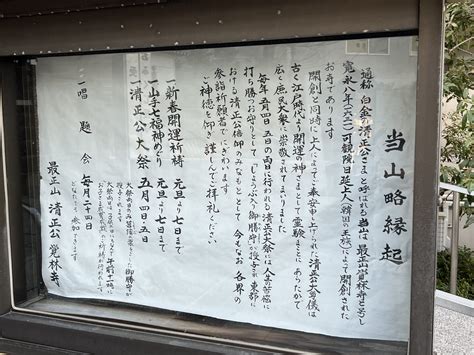 当山略縁起
通称 白金の清正公さまと呼ばれる当山は、最正山覚林寺と号し
寛永八年(一六三一)可観院日延上人(韓国の王族)によって開創された
お寺であります
開創と同時に上人によって奉安申し上げられた清正公大尊儀は
古く江戸時代より開運の神さまとして霊験まことにあらたかで
広く庶民大衆に崇敬されてまいりました
毎年五月四日五日の両日に行われる清正公大祭には人生の苦悩に
打ち勝つお守りとして「しょうぶ入り御勝守」が授与され東都に
おける清正公信仰のみなもととして今もなお各界の
参詣祈願者でにぎわます
ご神徳を仰ぎ謹んでご拝礼ください
一新春開運祈祷 元旦より七日まで
一山手七福神めぐり 元旦より七日まで
一清正公大祭 五月四日五日
大祭両日のみ菖蒲の葉の入った御勝守が
授与されます
一唱題会 毎月二十四日 午前十一時に
どなたでも参加できます
最正山 清正公 覚林寺